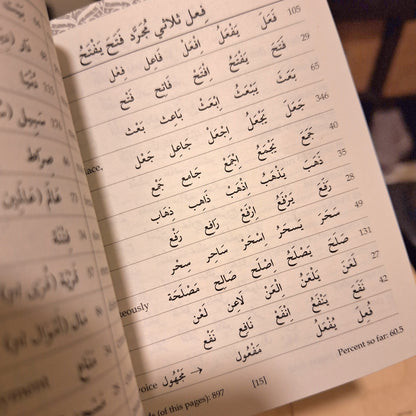 فِعْل ثُلَاثِي مُجَرَّد فَتَحَ يَفْتَحُ
105 فَعَلَ يَفْعَلُ اِفْعَلْ فَاعِل فِعْل
29 فَتَحَ يَفْتَحُ اِفْتَحْ فَاتِح فَتْح
65 بَعَثَ يَبْعَثُ اِبْعَثْ بَاعِث بَعْث
346 جَعَلَ يَجْعَلُ اِجْعَلْ جَاعِل جَعْل
40 جَمَعَ يَجْمَعُ اِجْمَعْ جَامِع جَمْع
35 ذَهَبَ يَذْهَبُ اِذْهَبْ ذَاهِب ذِهَاب
28 رَفَعَ يَرْفَعُ اِرْفَعْ رَافِع رَفْع
49 سَحَرَ يَسْحَرُ اِسْحَرْ سَاحِر سِحْر
131 صَلَحَ يَصْلَحُ اِصْلَحْ صَالِح مَصْلَحَة
27 لَعَنَ يَلْعَنُ اِلْعَنْ لَاعِن لَعْن
42 نَفَعَ يَنْفَعُ اِنْفَعْ نَافِع نَفْع
فُعِلَ يُفْعَلُ مَفْعُول → مَجْهُول voice
(of this pages): 897 [15] Percent so far: 60.5
سَبِيل
صِرَاط
عَالَم
فِتْنَة
مَتَاع